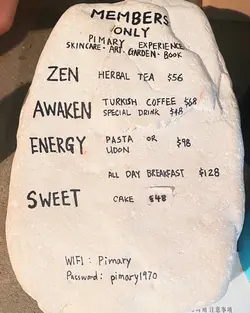 MEMBERS
ONLY
PIMARY EXPERIENCE
SKINCARE · ART · GARDEN · BOOK
ZEN HERBAL TEA $56
AWAKEN TURKISH COFFEE $68
SPECIAL DRINK $48
ENERGY PASTA OR
UDON $98
ALL DAY BREAKFAST $128
SWEET CAKE $48
WIFI : Pimary
Password: pimary1970
注意事項